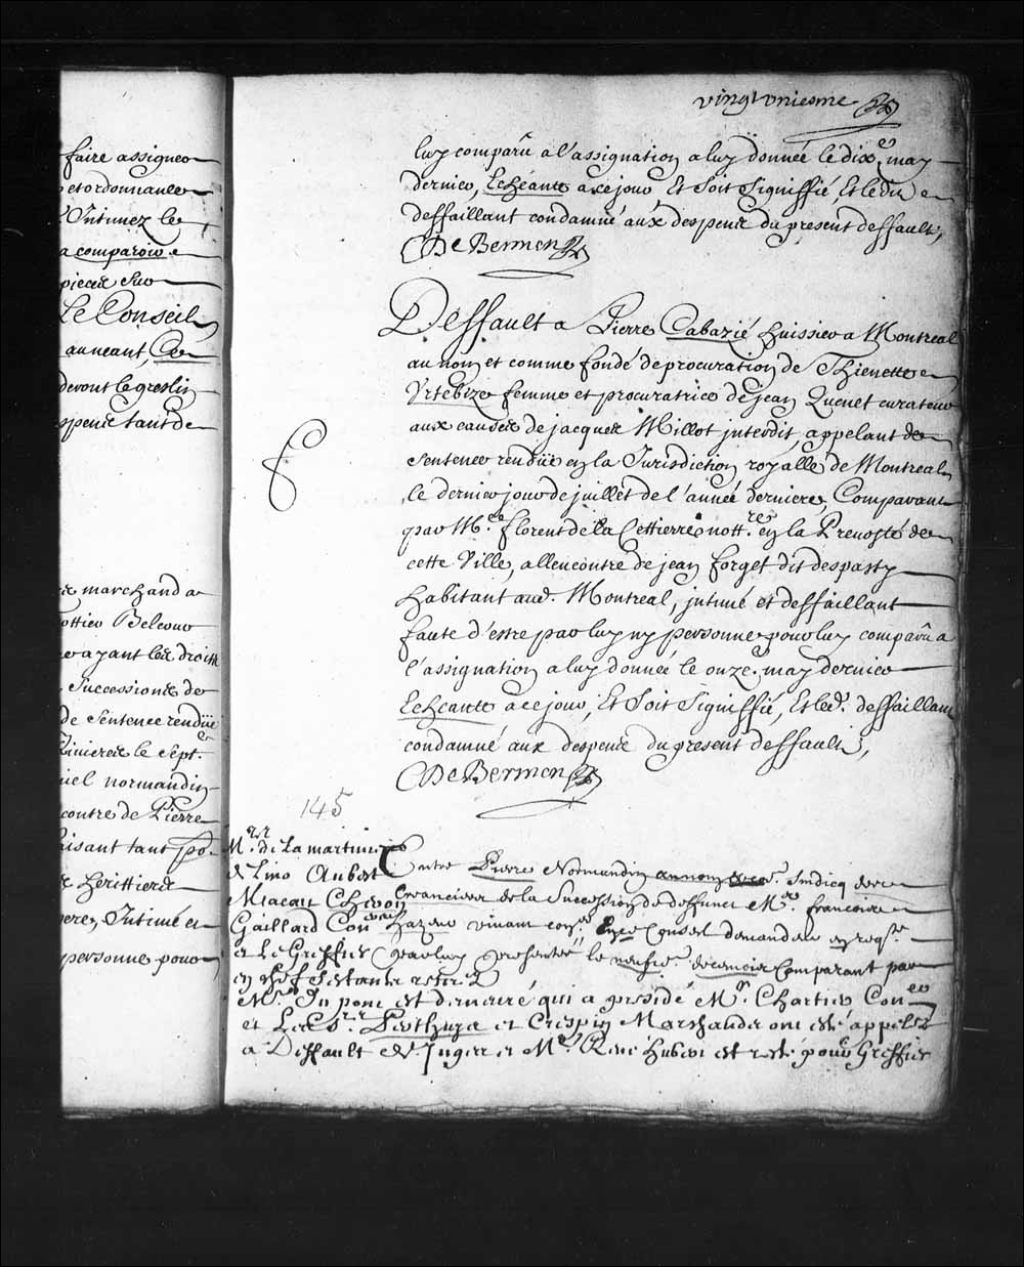 faire assigner
et ordonnance
Intimez le
a comparoir
pieces sur
Le Conseil
au neant, Ce
devront le greslin
spens tant de
marchand a
ottier Beleour
ayant les droits
Successions de
de Sentence rendüe
Rivieres le Sept.
uel normandin
contre de Pierre
faisant tant po.
heritiers
Intimé et
personne pour
vingt uniesme
luy comparu a l'assignation a luy donnée le dix.e may
dernier, Echéante a ce jour Et Soit Signiffié, Et le du
deffaillant condamné aux despens du present deffault,
De Bermen
Deffault a Pierre Cabazié huissier a Montreal
au nom et comme fondé de procuration de Thienette
Urtebize femme et procuratrice de jean Quenet curateur
aux causes de jacques Millot interdit, appelant de
sentence rendüe en la Jurisdiction royalle de Montreal
le dernier jour de juillet de l'année derniere, Comparant
par M.e florent de la Cettierre nott.re en la Prevosté de
cette Ville, allencontre de jean forget dit despasty
habitant aud. Montreal, intimé et deffaillant
faute d'estre par luy ny personne pour luy comparu a
l'assignation a luy donnée le onze. may dernier
Echeante a ce jour, Et Soit Signiffié, Et led. deffaillant
condamné aux despens du present deffault,
De Bermen
145
M.rs de La martiniere
de Lino Aubert
Macart Cheron
Gaillard Con.ers
et Le Greffier
en chef s'estants retirez
Entre Pierre Normandin au nom Sindicq des
Creanciers de la Succession de deffunct M.e francois
hazeur vivant con.er Conseil demandeur en req.te
par luy presentée le comparant par
M.r Dupont est demeuré qui a presidé M.r Chartier Con.er
et Les S.rs Perthuys et Crespin Marchands ont esté appelez
a Deffault de Juges et M.e Rene hubert est resté pour Greffier